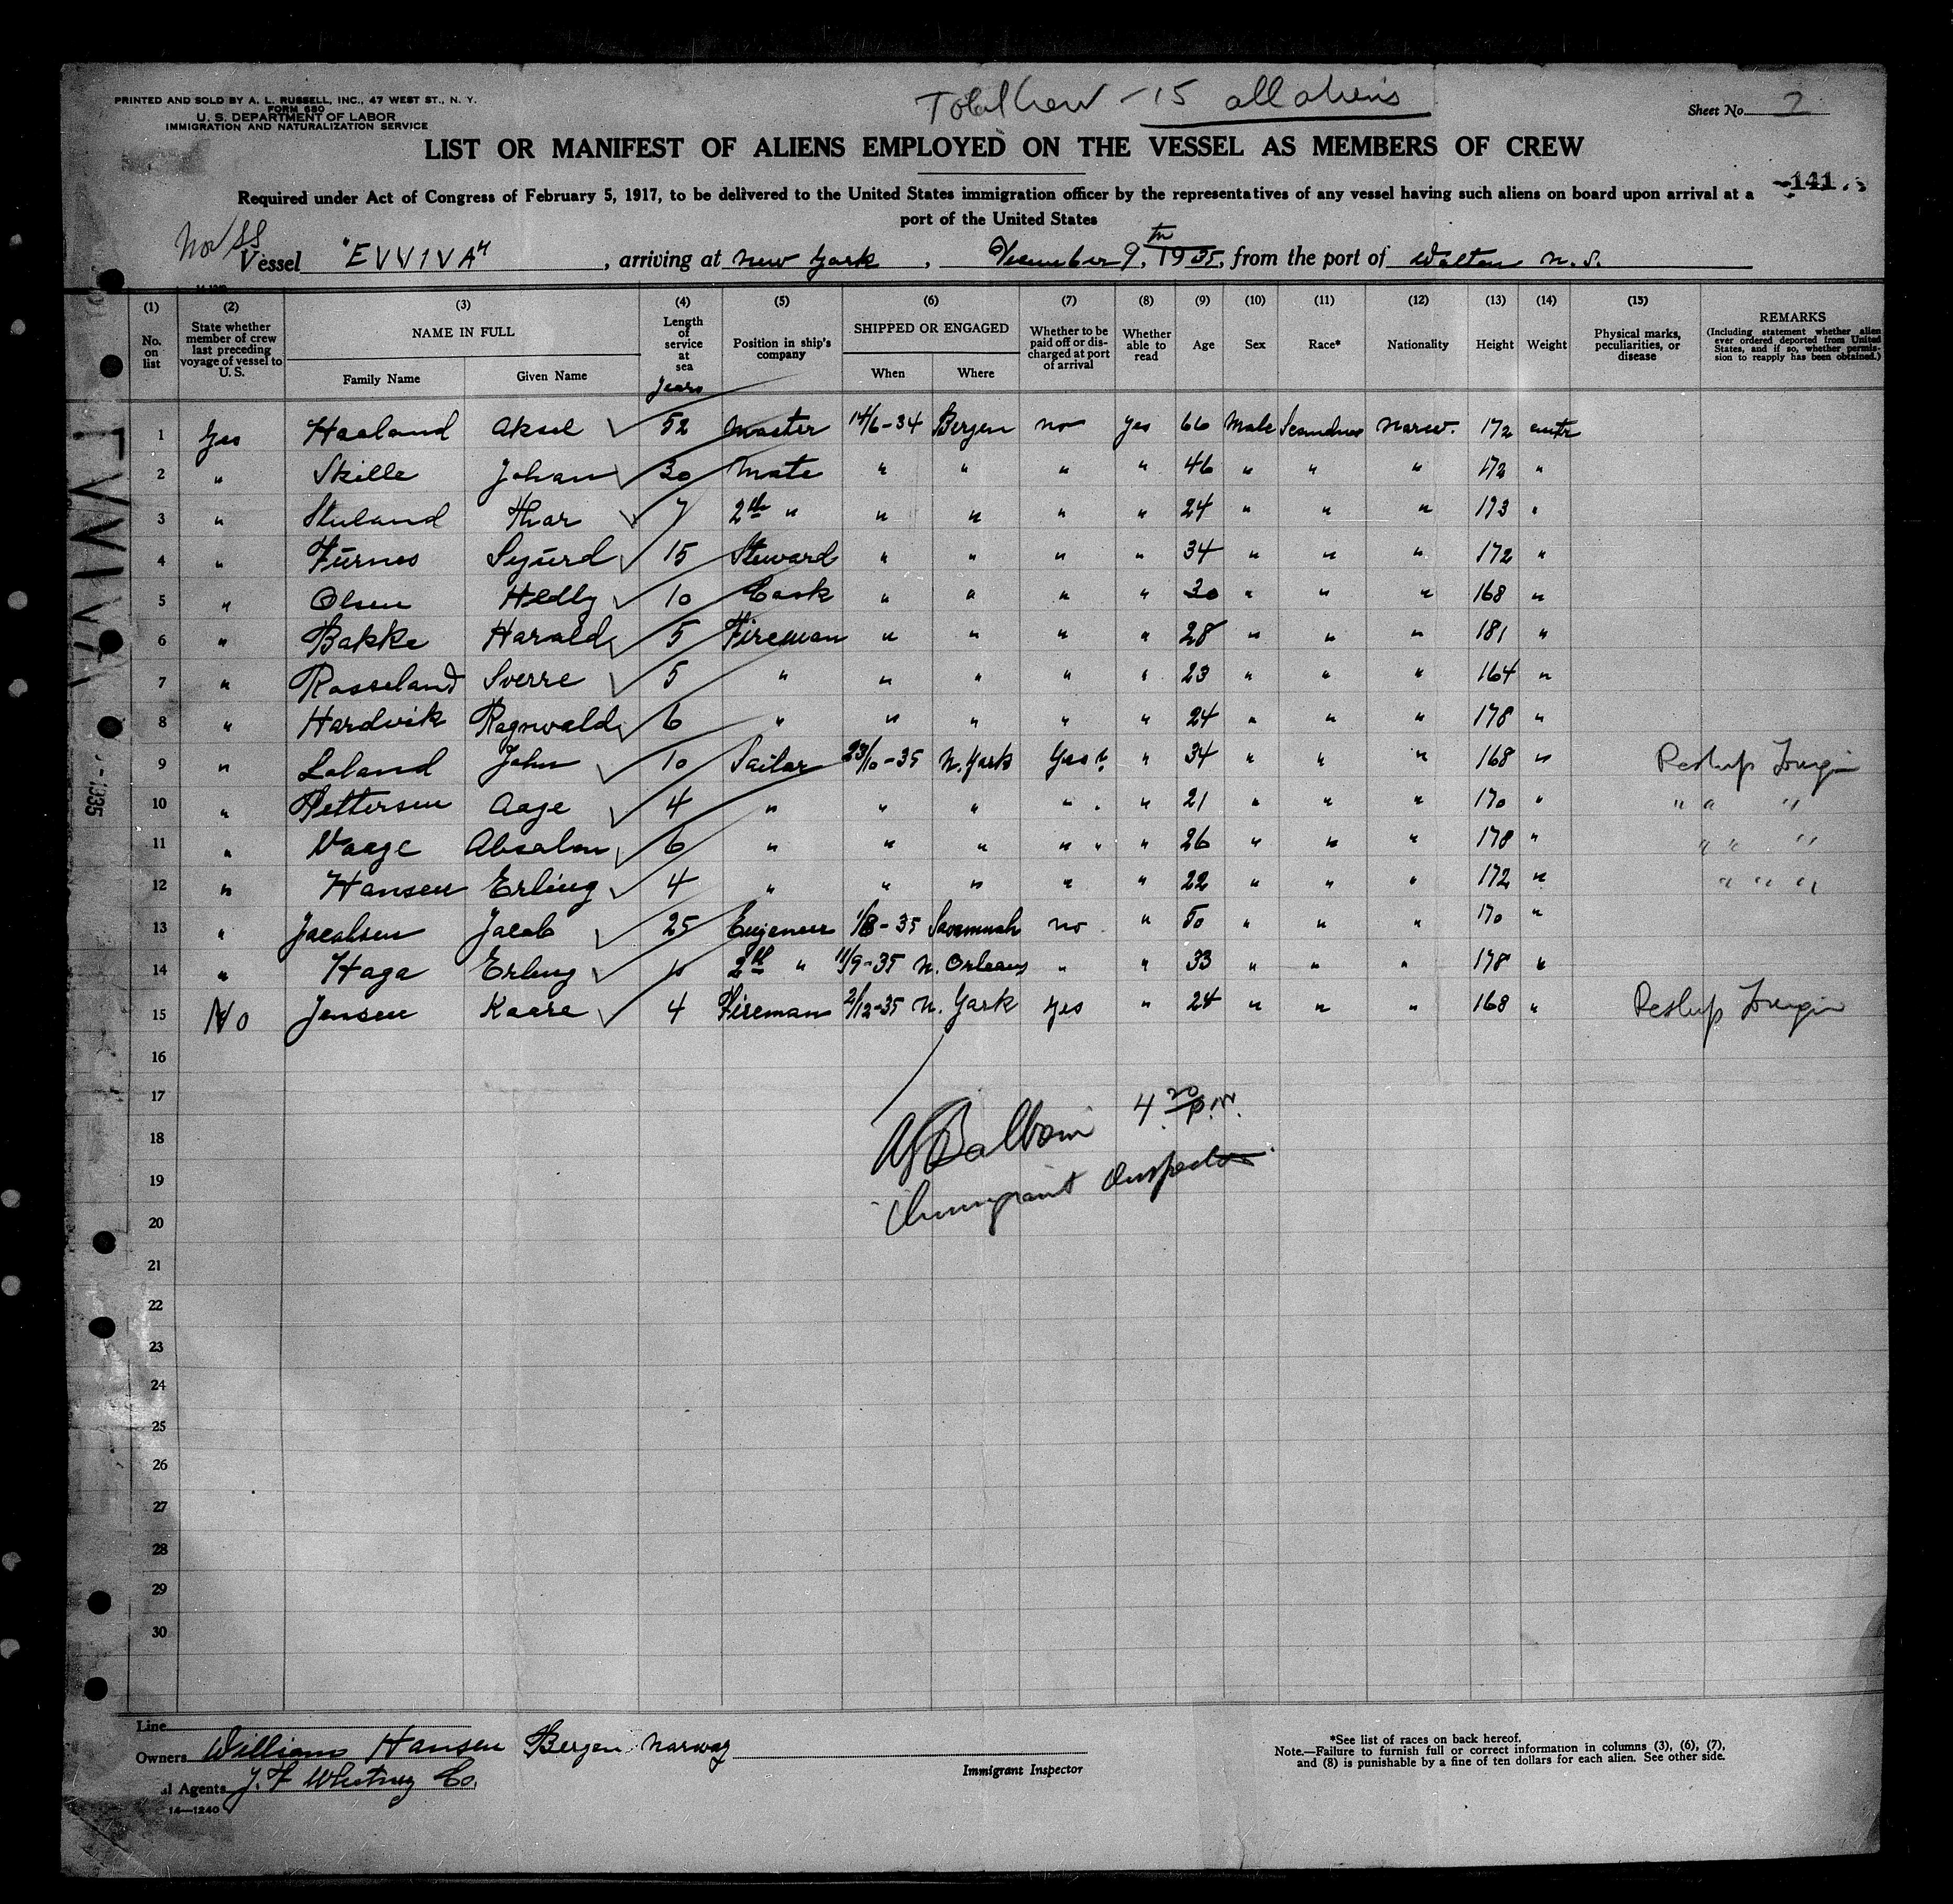 Total Crew - 15 all aliens
PRINTED AND SOLD BY A. L. RUSSELL, INC., 47 WEST ST., N. Y.
FORM 680
U. S. DEPARTMENT OF LABOR
IMMIGRATION AND NATURALIZATION SERVICE
Sheet No.
LIST OR MANIFEST OF ALIENS EMPLOYED ON THE VESSEL AS MEMBERS OF CREW
141
Required under Act of Congress of February 5, 1917, to be delivered to the United States immigration officer by the representatives of any vessel having such aliens on board upon arrival at a
port of the United States
Nor SS
Vessel "EVVIVA", arriving at New York, December 9th, 1935, from the port of Walton N.S.
(1) (2) (3) (4) (5) (6) (7) (8) (9) (10) (11) (12) (13) (14) (15)
No. on list
State whether member of crew last preceding voyage of vessel to U. S.
NAME IN FULL
Family Name Given Name
Length of service at sea
years
Position in ship's company
SHIPPED OR ENGAGED
When Where
Whether to be paid off or discharged at port of arrival
Whether able to read
Age Sex Race* Nationality Height Weight
Physical marks, peculiarities, or disease
REMARKS
(Including statement whether alien ever ordered deported from United States, and if so, whether permission to reapply has been obtained.)
1 Yes Haaland Aksel 52 Master 14/6-34 Bergen no yes 66 Male Norw. 172
2 " Skille Johan 30 Mate " " " " 46 " " " 172 "
3 " Thor 7 2th " " " " " 24 " " " 173 "
4 " Furnes Sgurd 15 Steward " " " " 34 " " " 172 "
5 " Olsen Hedly 10 Cook " " " " 30 " " " 168 "
6 " Bakke Harald 5 Fireman " " " " 28 " " " 181 "
7 " Rosseland Sverre 5 " " " " " 23 " " " 164 "
8 " Hardvik Ragnvald 6 " " " " " 24 " " " 178 "
9 " Loland John 10 Sailor 23/10-35 N. York Yes " 34 " " " 168 " Reship Foreign
10 " Pettersen Aage 4 " " " " " 21 " " " 170 " " " "
11 " Vaage Absalon 6 " " " " " 26 " " " 178 " " " "
12 " Hansen Erling 4 " " " " " 22 " " " 172 " " " "
13 " Jacobsen Jacob 25 Engeneer 1/8-35 Savannah no " 50 " " " 170 "
14 " Haga Erling 10 2th " 11/9-35 N. Orleans " " 33 " " " 178 "
15 No Jensen Kaare 4 Fireman 2/12-35 N. York yes " 24 " " " 168 " Reship Foreign
16
17
18
19
20
21
22
23
24
25
26
27
28
29
30
4 20 P.M.
Immigrant Inspector
EVVIVA
1935
Line
Owners William Hansen Bergen Norway
l Agents J. F. Whitney Co.
14—1240
Immigrant Inspector
*See list of races on back hereof.
Note.—Failure to furnish full or correct information in columns (3), (6), (7),
and (8) is punishable by a fine of ten dollars for each alien. See other side.